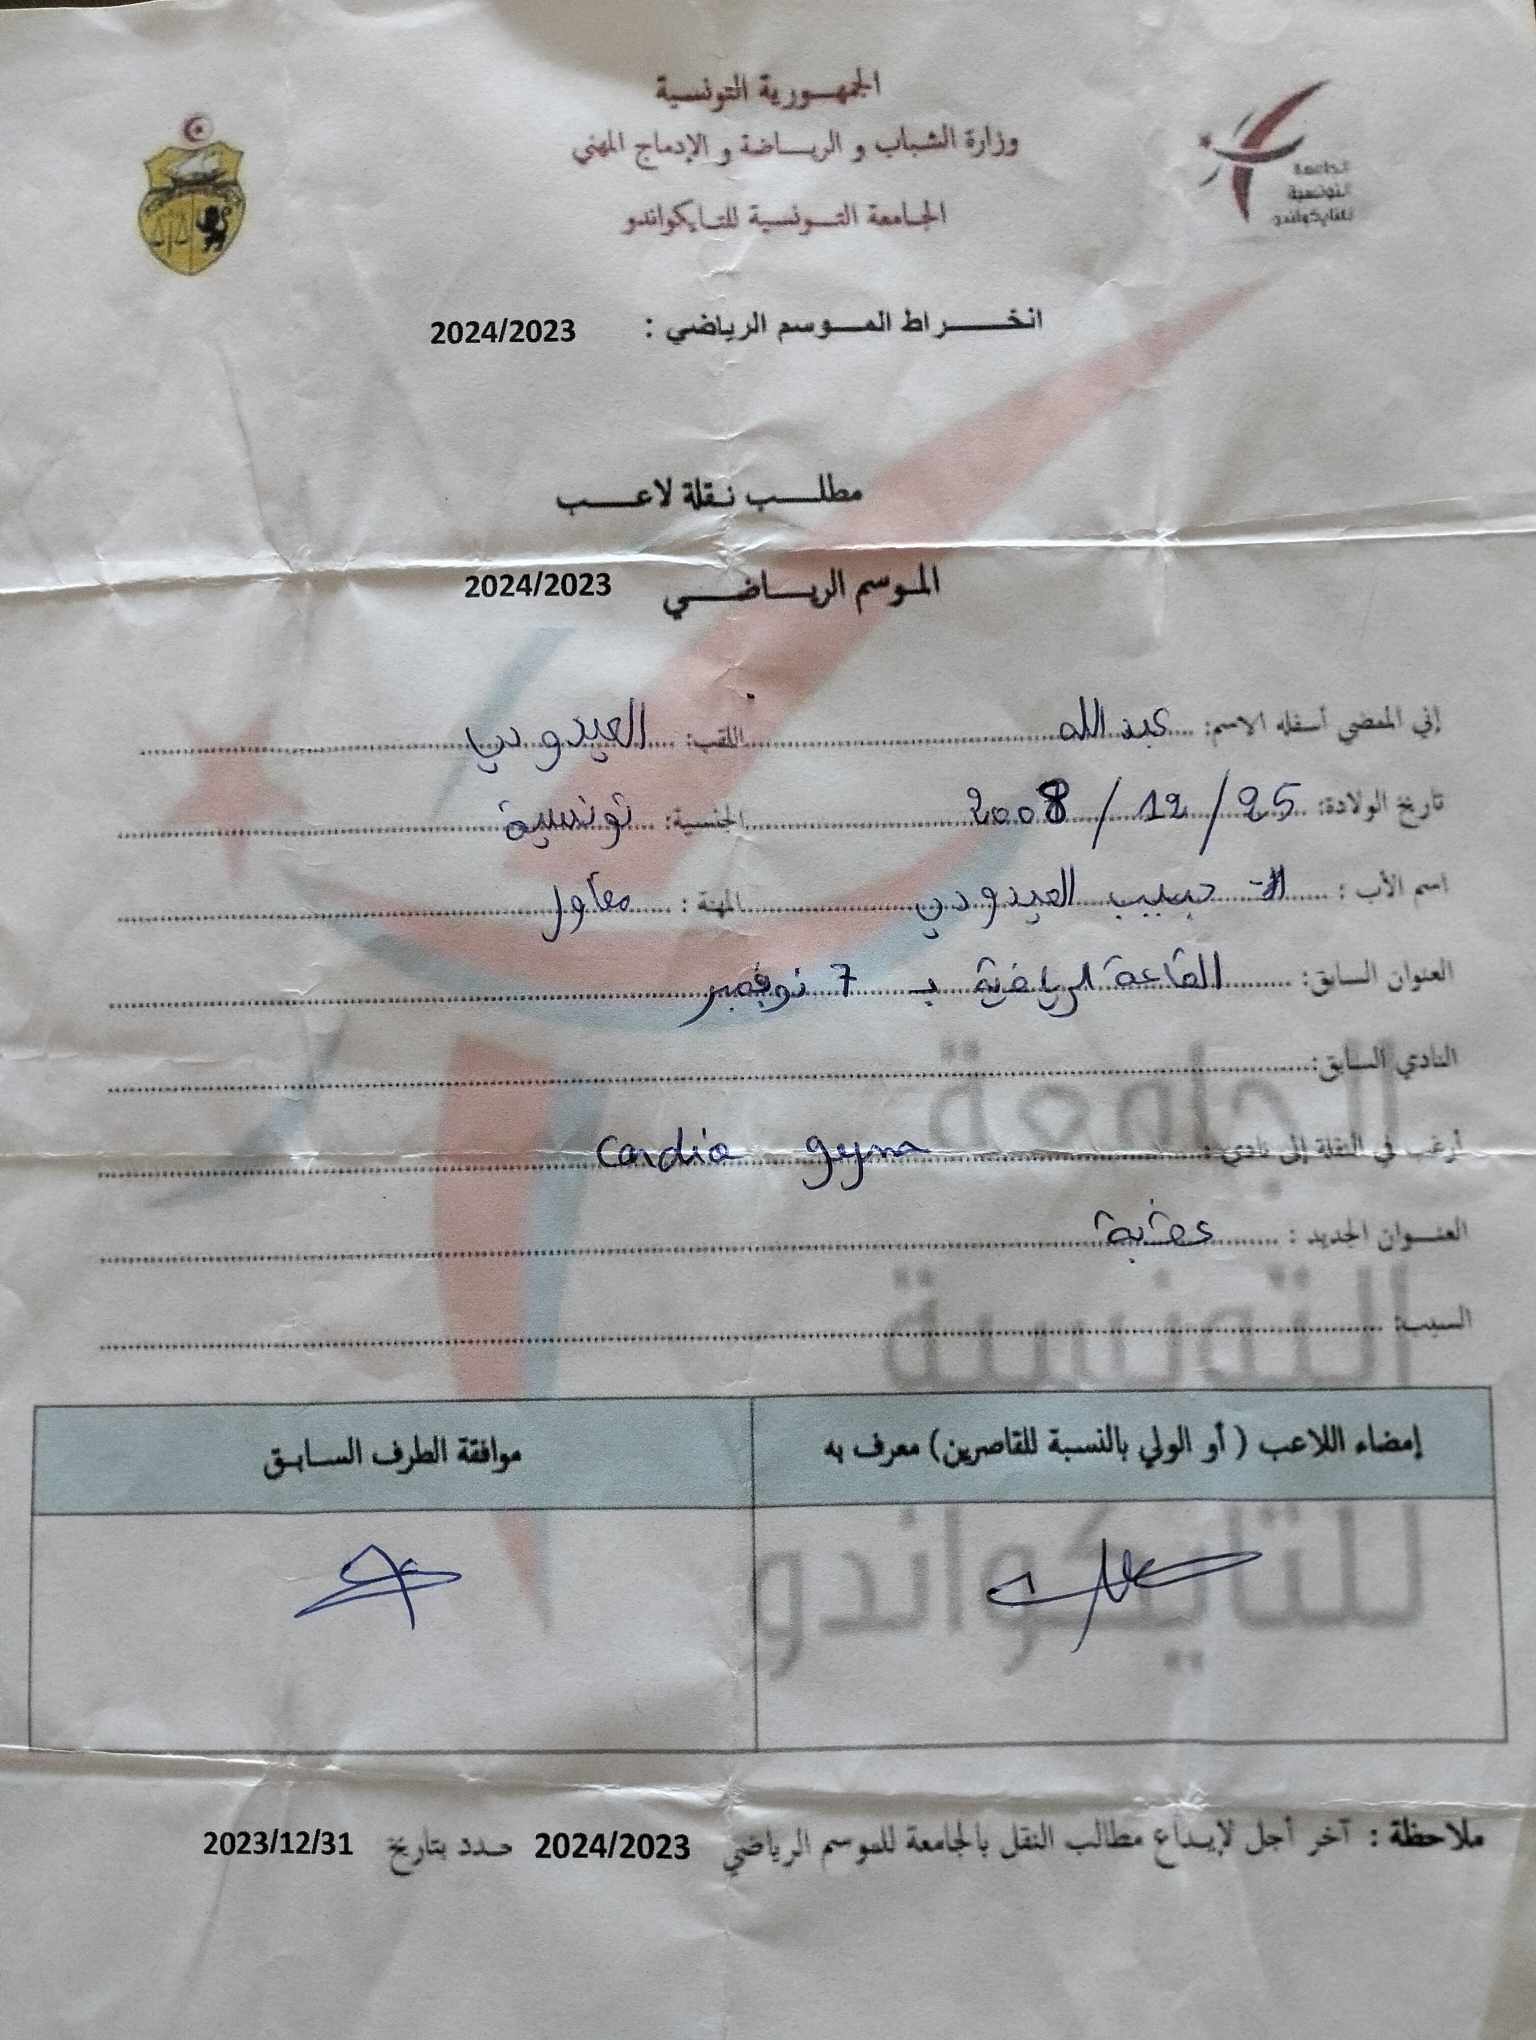 الجمهورية التونسية
وزارة الشباب و الرياضة و الإدماج المهني
الجامعة التونسية للتايكواندو
الجامعة
التونسية
للتايكواندو
انخراط الموسم الرياضي : 2024/2023
مطلب نقلة لاعب
الموسم الرياضي 2024/2023
إني الممضي أسفله الاسم: عبد الله اللقب: العيدودي
تاريخ الولادة: 25 / 12 / 2008 الجنسية: تونسية
اسم الأب : حبيب العيدودي المهنة :
العنوان السابق: القاعة الرياضية بـ 7 نوفمبر
النادي السابق:
أرغب في النقلة إلى نادي : Cardio gym
العنوان الجديد : عقبة
السبب:
إمضاء اللاعب ( أو الولي بالنسبة للقاصرين) معرف به موافقة الطرف السابق
ملاحظة : آخر أجل لإيداع مطالب النقل بالجامعة للموسم الرياضي 2024/2023 حدد بتاريخ 2023/12/31
الجامعة
التونسية
للتايكواندو